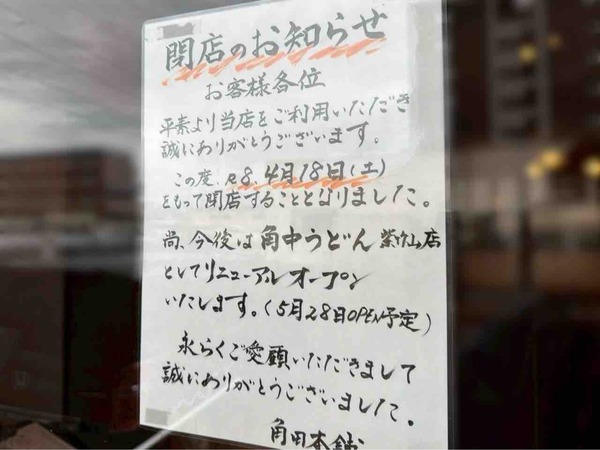 閉店のお知らせ
お客様各位
平素より当店をご利用いただき
誠にありがとうございます。
この度、R8.4月18日(土)
をもって閉店することとなりました。
尚、今後は角中うどん 紫竹山店
としてリニューアルオープン
いたします。(5月28日OPEN予定)
永らくご愛顧いただきまして
誠にありがとうございました。
角田本舗